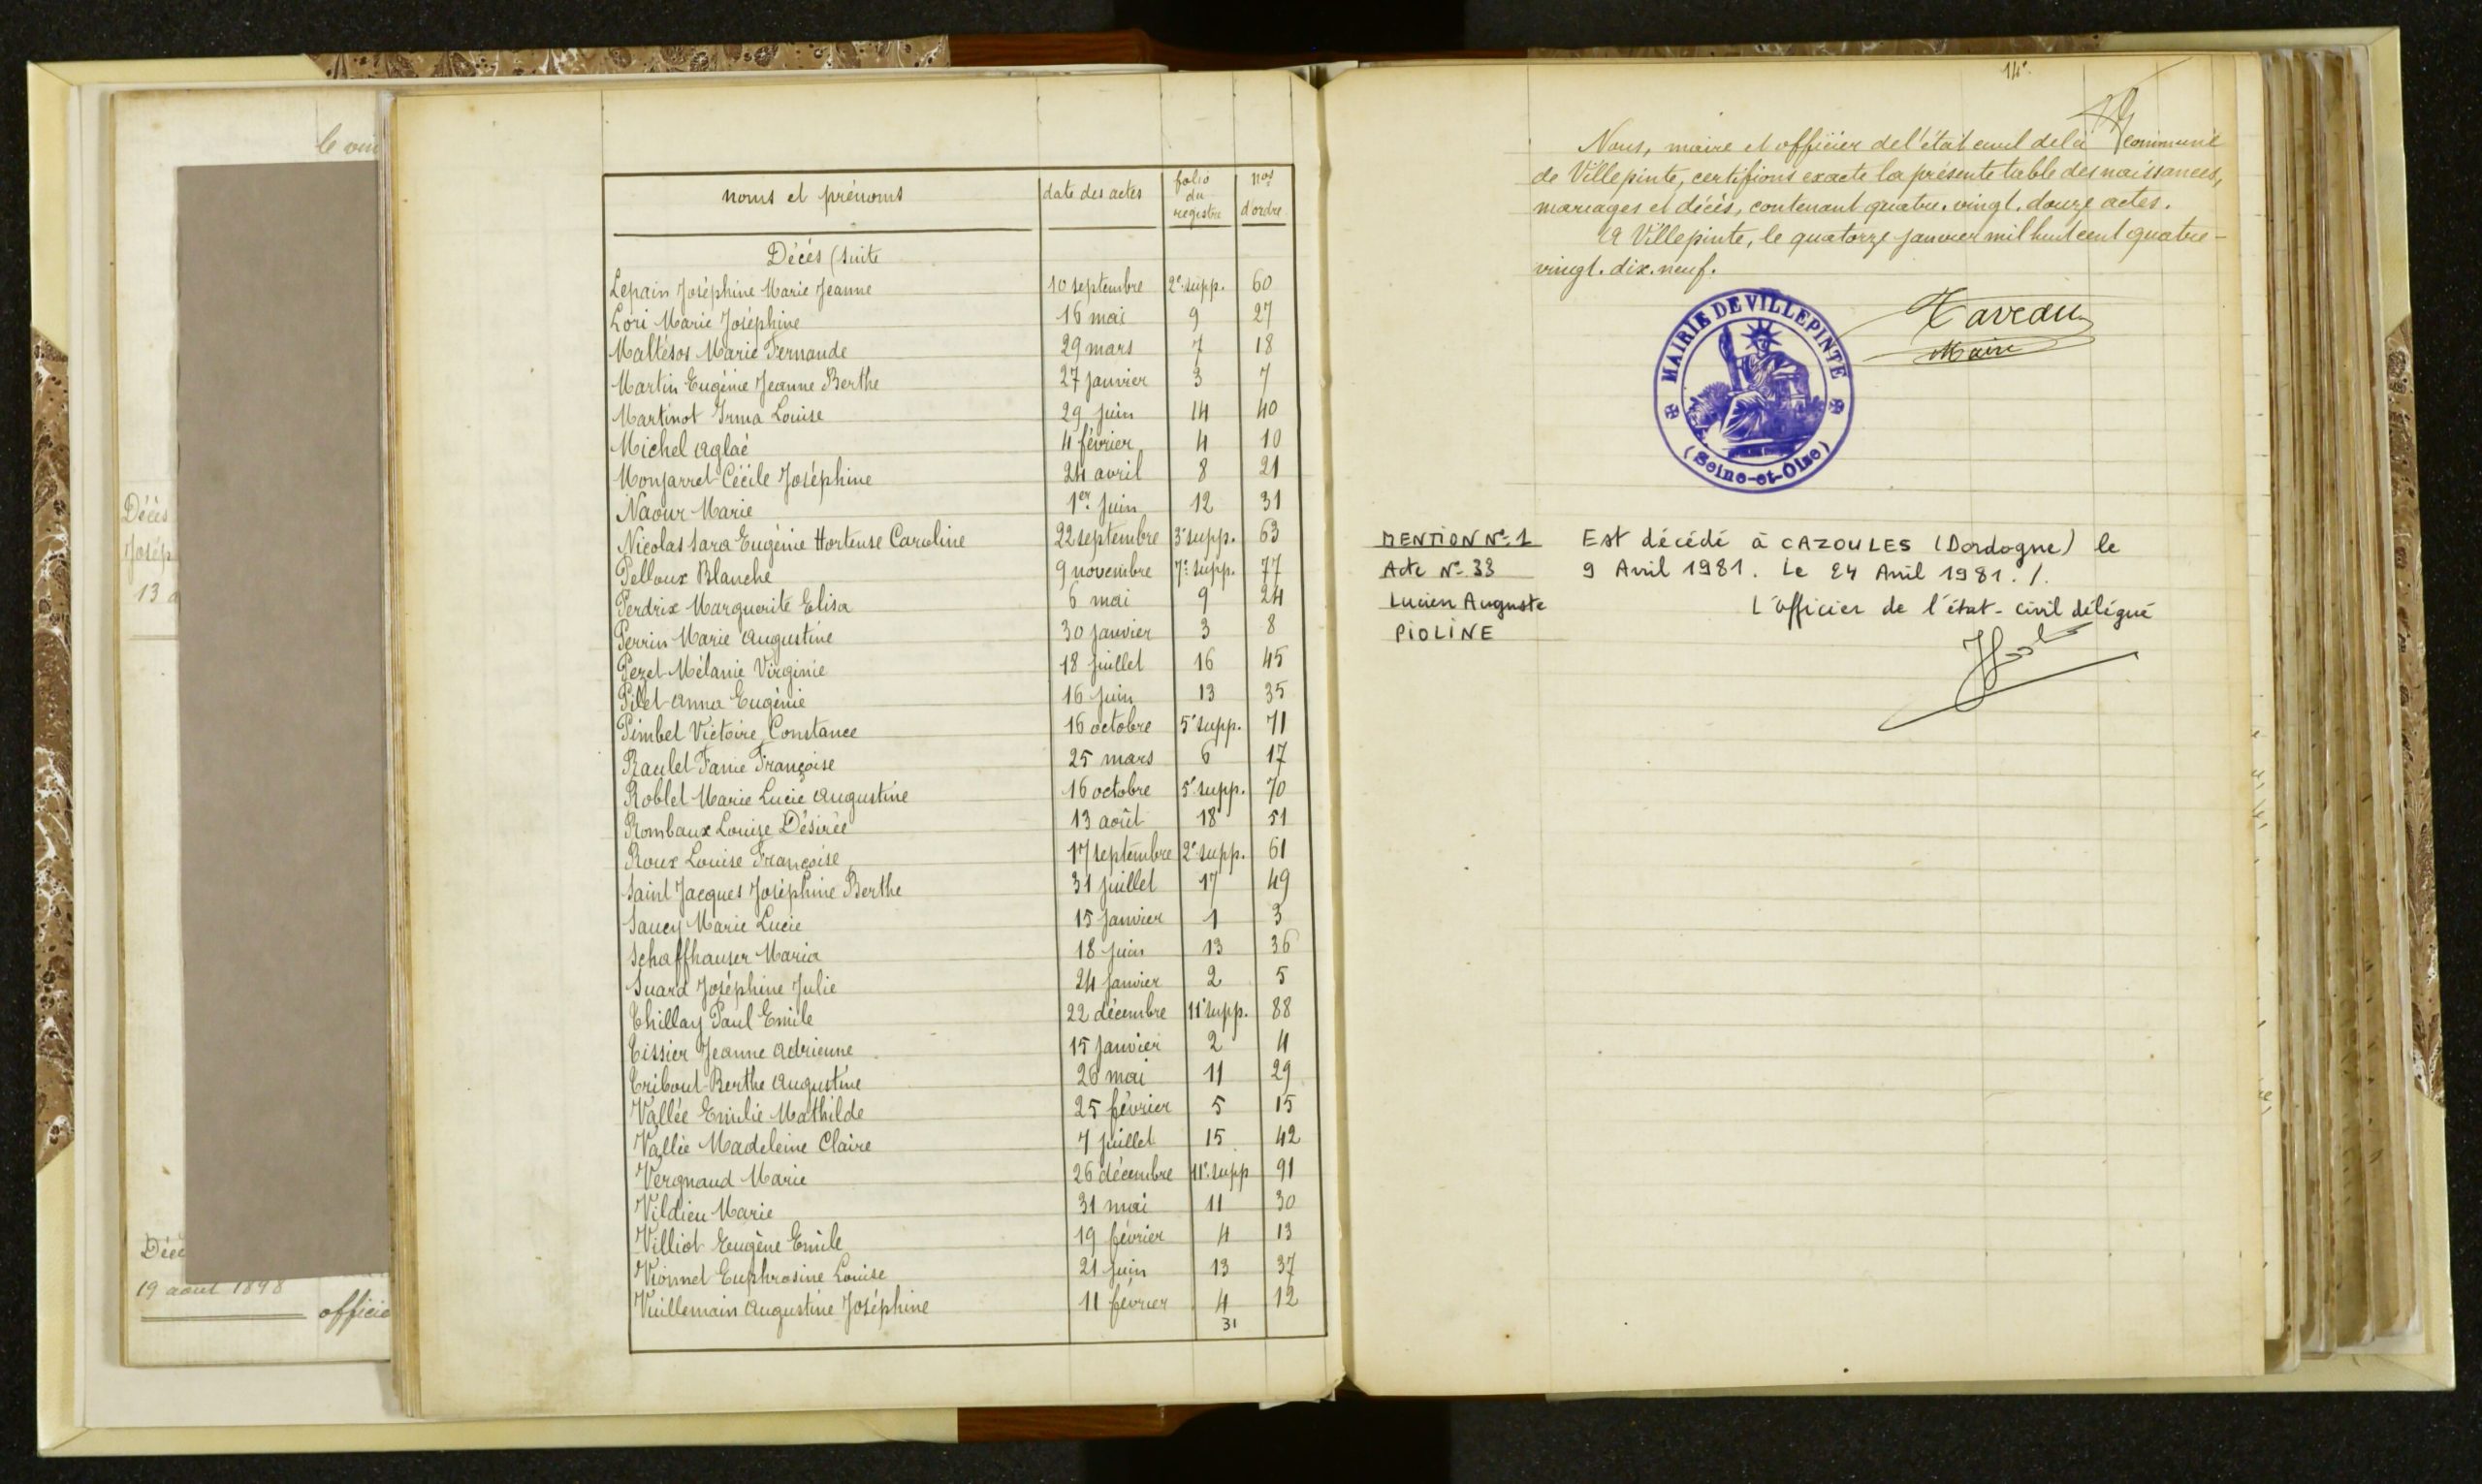 le vin
Décès
Josép
13 a
Déc
19 août 1898
officie
noms et prénoms | date des actes | folio du registre | nos d'ordre
Décès (suite
Lepain Joséphine Marie Jeanne | 10 septembre | 2e supp. | 60
Lori Marie Joséphine | 16 mai | 9 | 27
Maltésos Marie Fernande | 29 mars | 7 | 18
Martin Eugénie Jeanne Berthe | 27 janvier | 3 | 7
Martinot Irma Louise | 29 juin | 14 | 40
Michel Aglaé | 4 février | 4 | 10
Monjarret Cécile Joséphine | 24 avril | 8 | 21
Naour Marie | 1er juin | 12 | 31
Nicolas Sara Eugénie Hortense Caroline | 22 septembre | 3e supp. | 63
Pelloux Blanche | 9 novembre | 7e supp. | 77
Perdrix Marguerite Elisa | 6 mai | 9 | 24
Perrin Marie Augustine | 30 janvier | 3 | 8
Pezet Mélanie Virginie | 18 juillet | 16 | 45
Pilet Anna Eugénie | 16 juin | 13 | 35
Pimbel Victoire Constance | 16 octobre | 5e supp. | 71
Raulet Fanie Françoise | 25 mars | 6 | 17
Roblet Marie Lucie Augustine | 16 octobre | 5e supp. | 70
Rombaux Louise Désirée | 13 août | 18 | 51
Roux Louise Françoise | 17 septembre | 2e supp. | 61
Saint Jacques Joséphine Berthe | 31 juillet | 17 | 49
Saucy Marie Lucie | 15 janvier | 1 | 3
Schaffhauser Maria | 18 juin | 13 | 36
Suard Joséphine Julie | 24 janvier | 2 | 5
Thillay Paul Emile | 22 décembre | 11e supp. | 88
Tissier Jeanne Adrienne | 15 janvier | 2 | 4
Tribout Berthe Augustine | 26 mai | 11 | 29
Vallée Emilie Mathilde | 25 février | 5 | 15
Vallée Madeleine Claire | 7 juillet | 15 | 42
Vergnaud Marie | 26 décembre | 11e supp | 91
Vildieu Marie | 31 mai | 11 | 30
Villiot Eugène Emile | 19 février | 4 | 13
Vionnet Euphrosine Louise | 21 juin | 13 | 37
Vuillemain Augustine Joséphine | 11 février | 4 | 12
31
14e
Nous, maire et officier de l'état civil de la commune
de Villepinte, certifions exacte la présente table des naissances,
mariages et décès, contenant quatre-vingt-douze actes.
A Villepinte, le quatorze janvier mil huit cent quatre-
vingt-dix-neuf.
Taveau
Maire
MAIRIE DE VILLEPINTE
(Seine-et-Oise)
MENTION N° 1
Acte N° 33
Lucien Auguste
PIOLINE
Est décédé à CAZOULES (Dordogne) le
9 Avril 1981. Le 24 Avril 1981. /.
L'officier de l'état-civil délégué